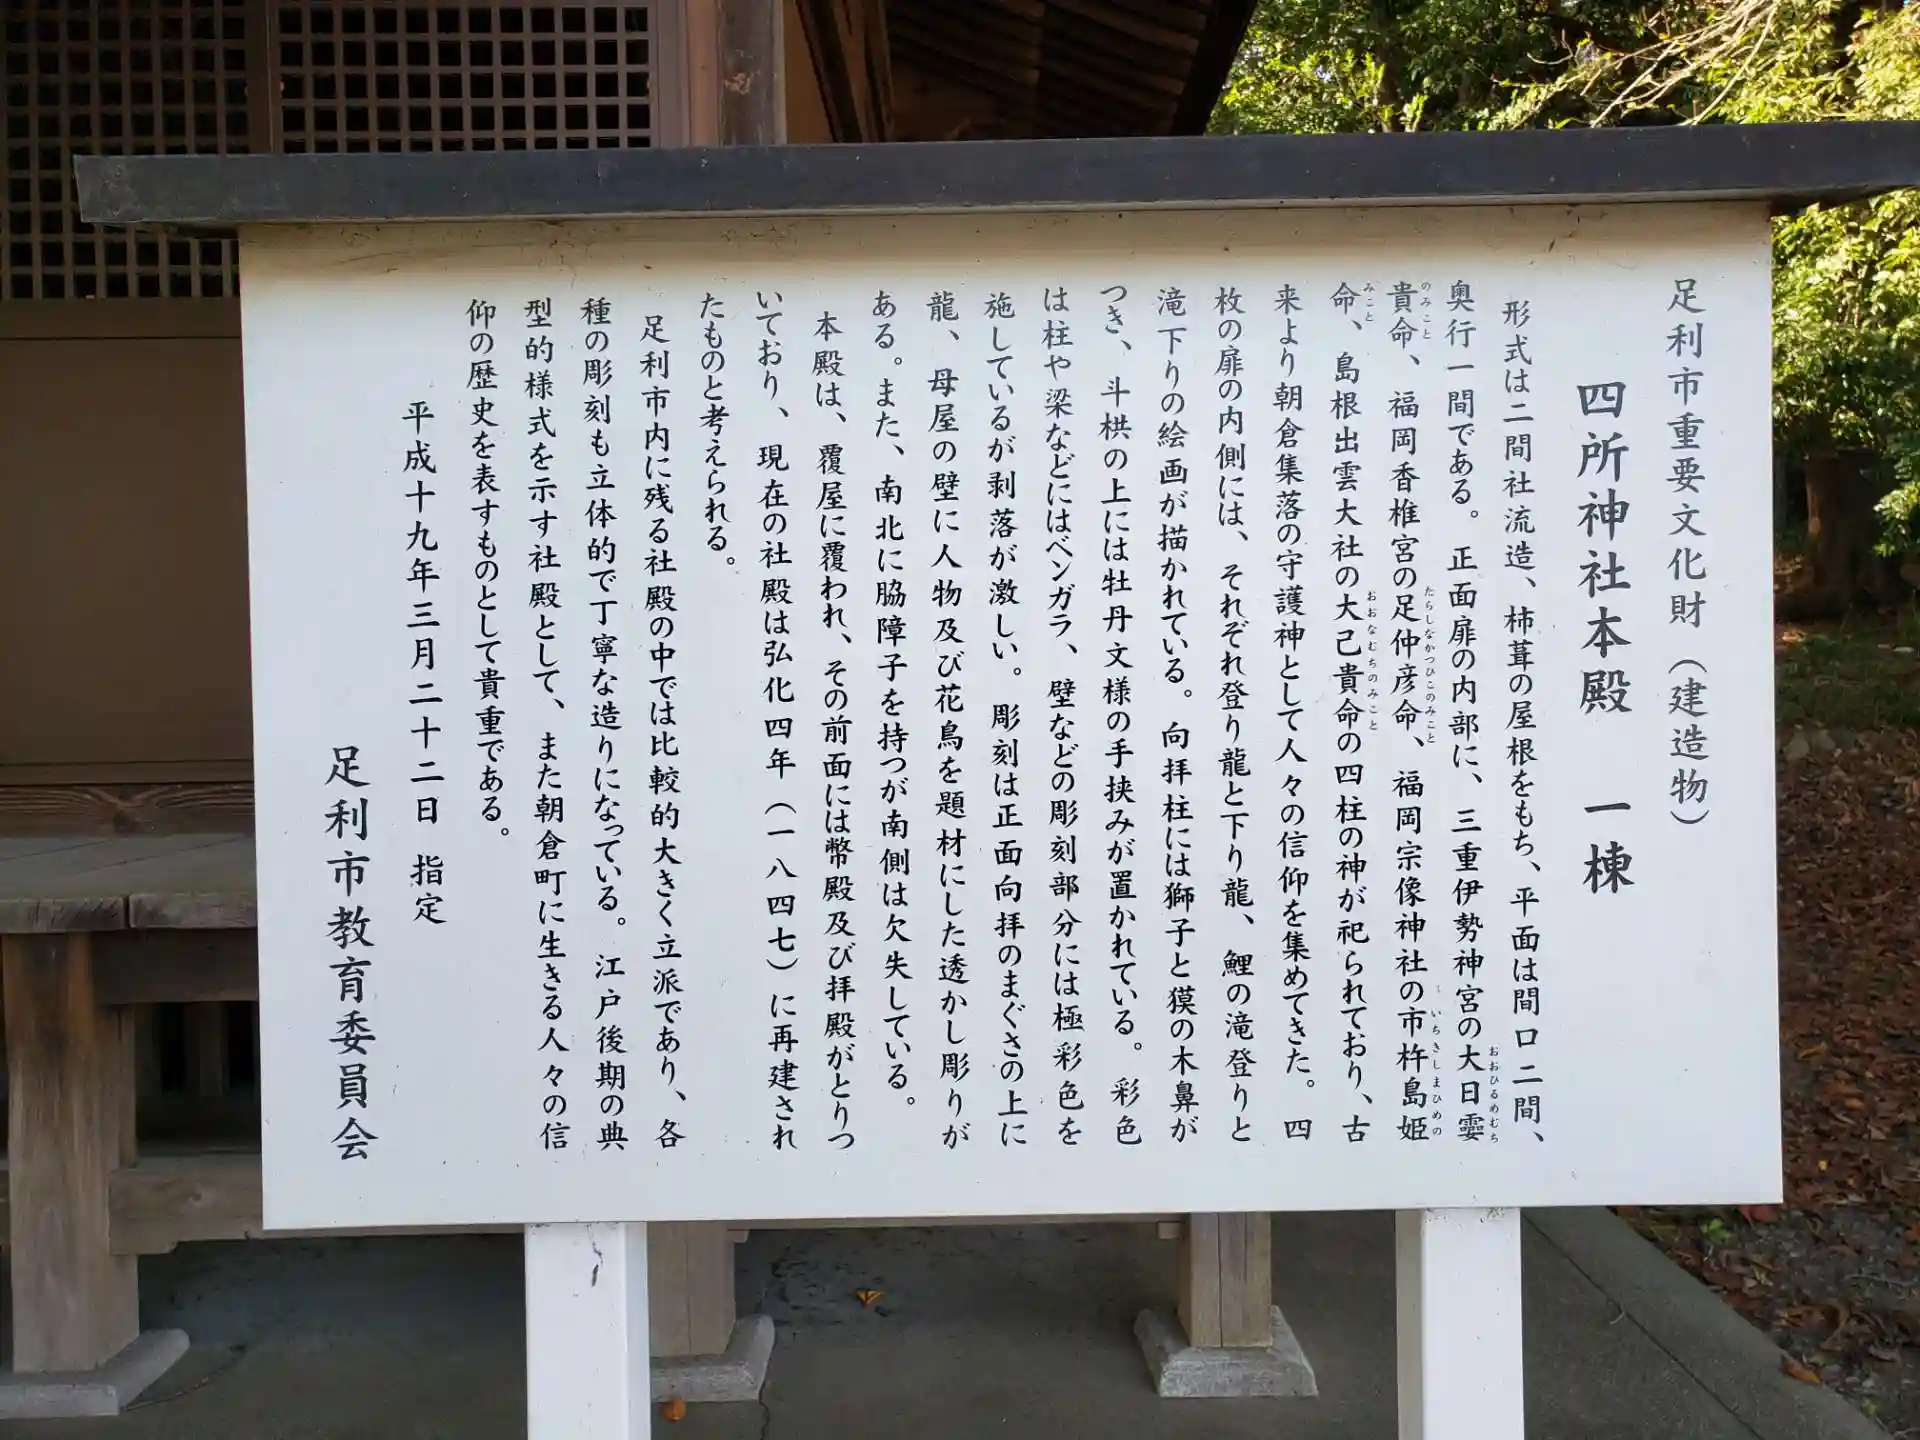 足利市重要文化財（建造物）
四所神社本殿　一棟
形式は二間社流造、柿葺の屋根をもち、平面は間口二間、
奥行一間である。正面扉の内部に、三重伊勢神宮の大日孁
貴命、福岡香椎宮の足仲彦命、福岡宗像神社の市杵島姫
命、島根出雲大社の大己貴命の四柱の神が祀られており、古
来より朝倉集落の守護神として人々の信仰を集めてきた。四
枚の扉の内側には、それぞれ登り龍と下り龍、鯉の滝登りと
滝下りの絵画が描かれている。向拝柱には獅子と獏の木鼻が
つき、斗栱の上には牡丹文様の手挟みが置かれている。彩色
は柱や梁などにはベンガラ、壁などの彫刻部分には極彩色を
施しているが剥落が激しい。彫刻は正面向拝のまぐさの上に
龍、母屋の壁に人物及び花鳥を題材にした透かし彫りが
ある。また、南北に脇障子を持つが南側は欠失している。
本殿は、覆屋に覆われ、その前面には幣殿及び拝殿がとりつ
いており、現在の社殿は弘化四年（一八四七）に再建され
たものと考えられる。
足利市内に残る社殿の中では比較的大きく立派であり、各
種の彫刻も立体的で丁寧な造りになっている。江戸後期の典
型的様式を示す社殿として、また朝倉町に生きる人々の信
仰の歴史を表すものとして貴重である。
平成十九年三月二十二日　指定
足利市教育委員会